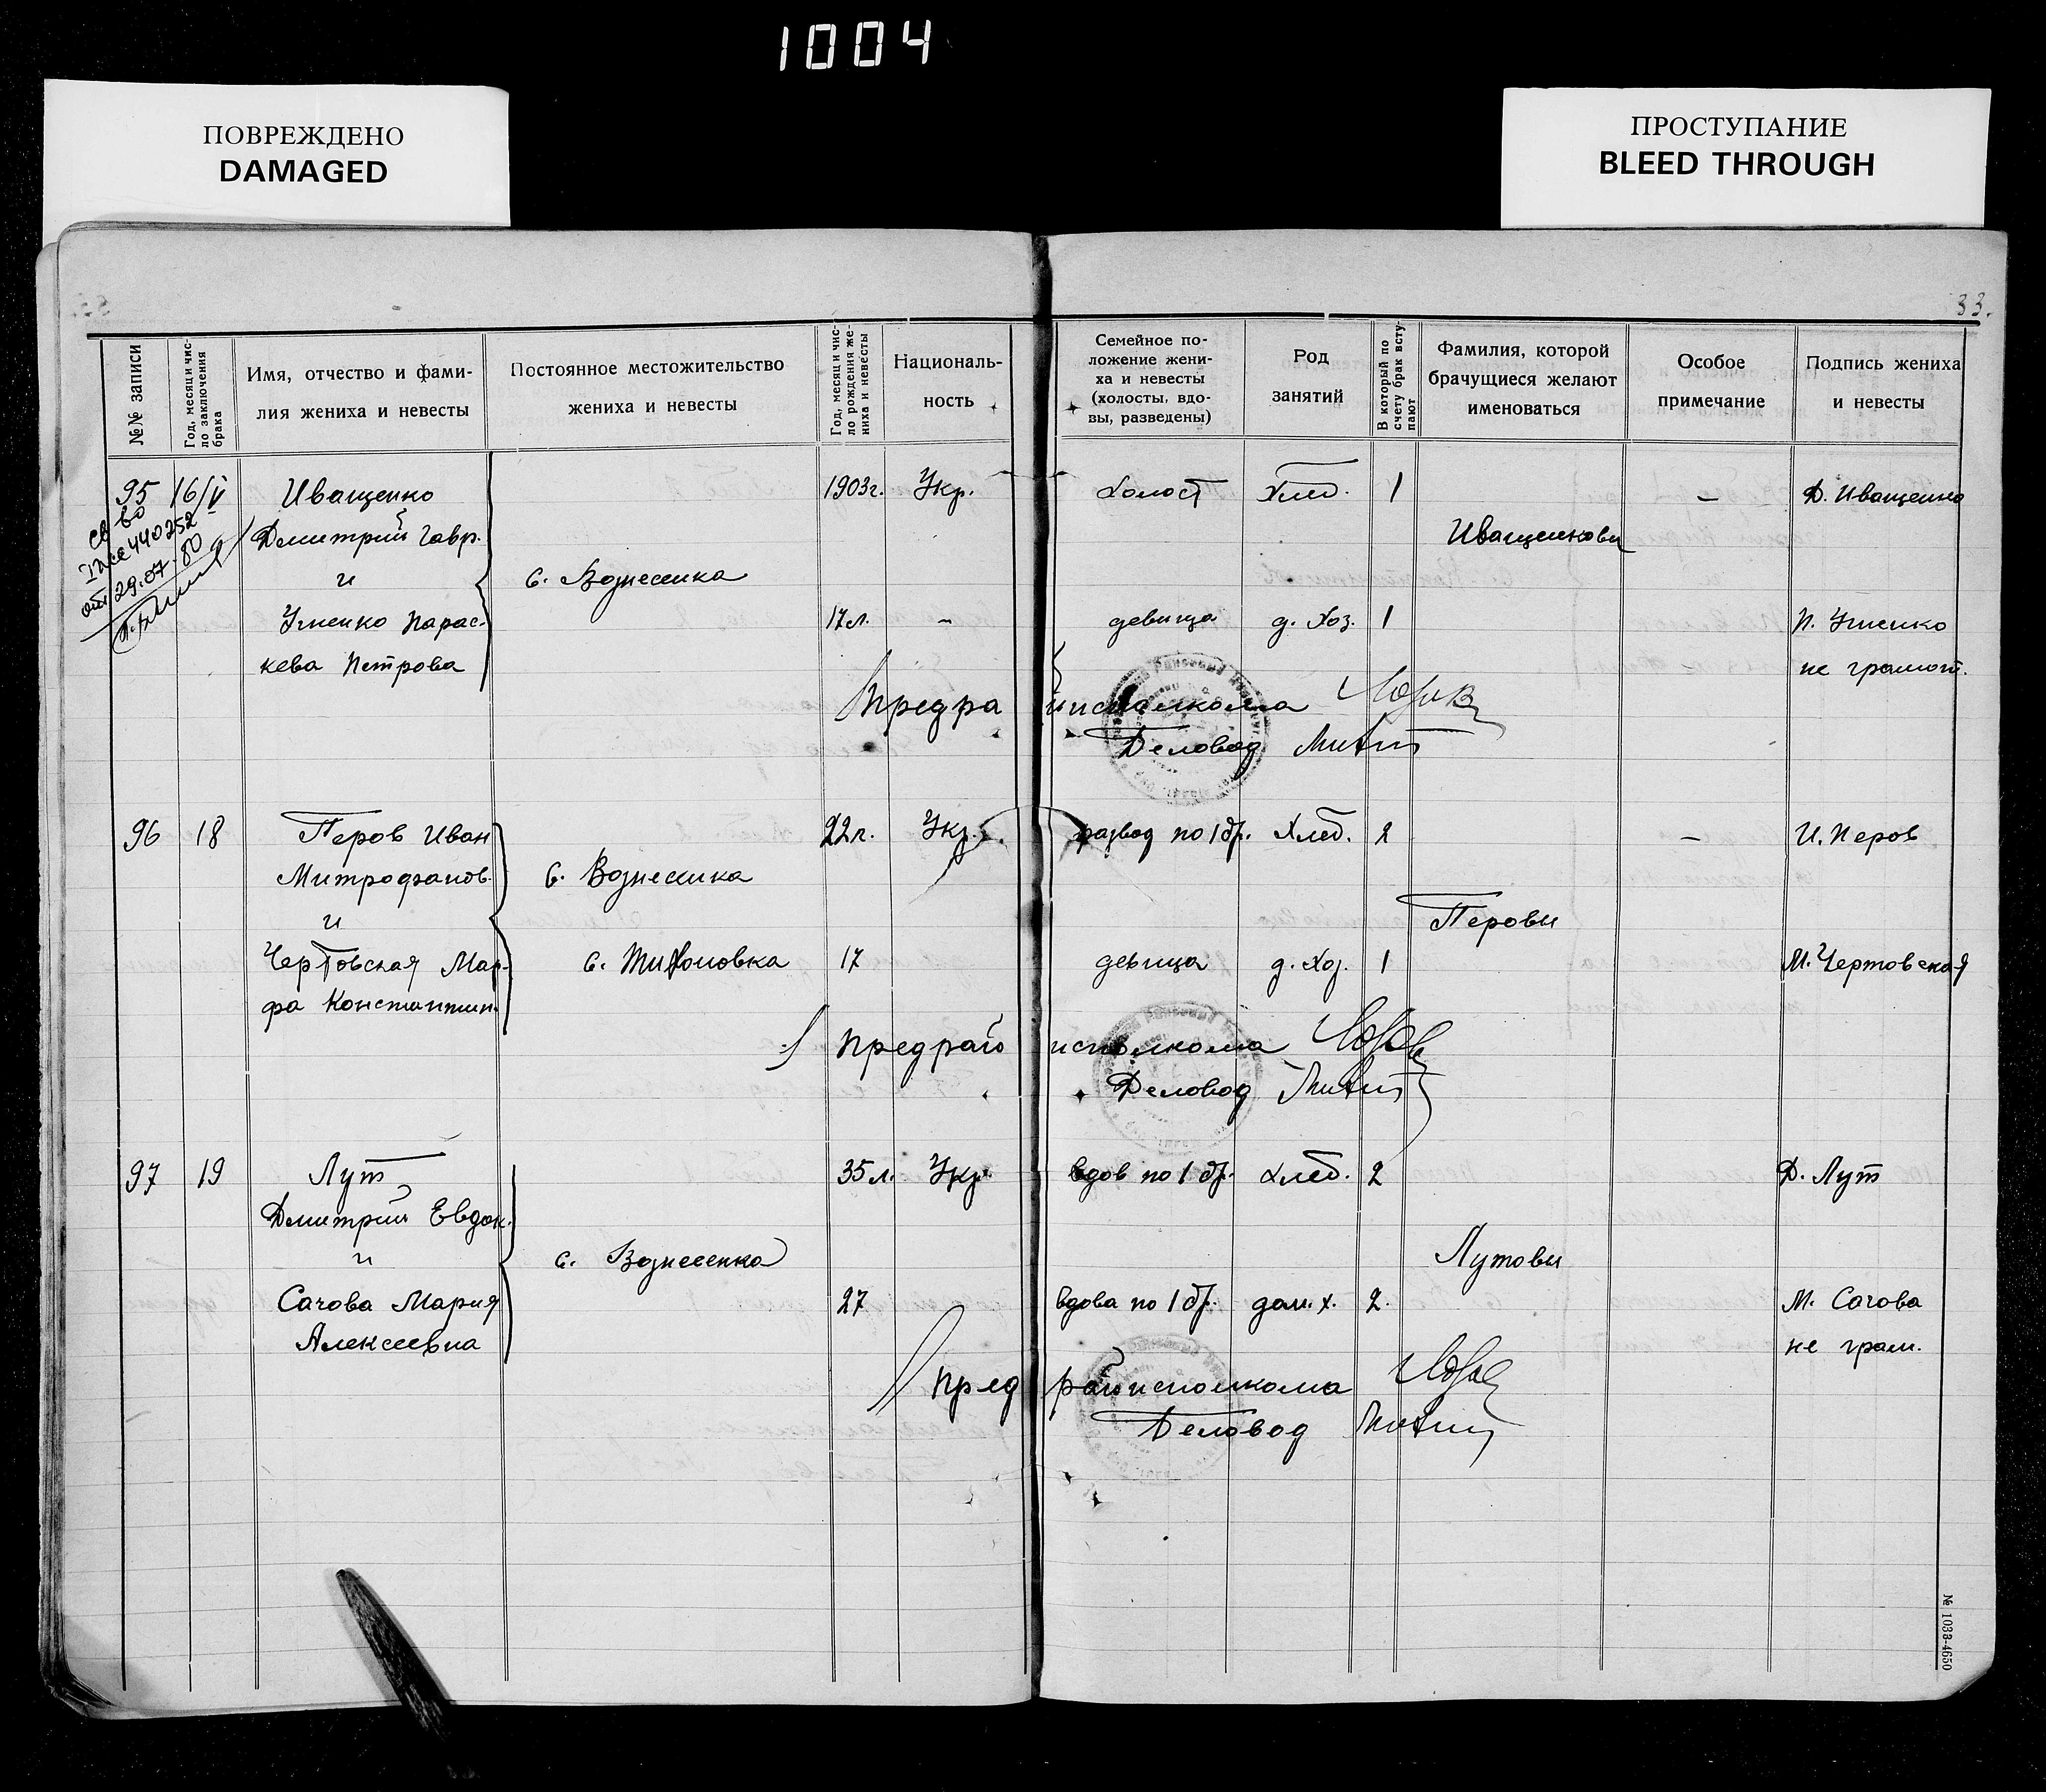 1004
ПОВРЕЖДЕНО
DAMAGED
ПРОСТУПАНИЕ
BLEED THROUGH
33.
№№ записи
Год, месяц и чис-
ло заключения
брака
Имя, отчество и фами-
лия жениха и невесты
Постоянное местожительство
жениха и невесты
Год, месяц и чис-
ло рождения же-
ниха и невесты
Националь-
ность
Семейное по-
ложение жени-
ха и невесты
(холосты, вдо-
вы, разведены)
Род
занятий
В который по
счету брак всту-
пают
Фамилия, которой
брачущиеся желают
именоваться
Особое
примечание
Подпись жениха
и невесты
95 16/V Иващенко 1903г. Укр. холост Хлеб. 1 — Д. Иващенко
св во
440252
от 29.07.80
Дмитрий Гавр. Иващенковы
и с. Вознесенка
Уменко Парас- 17л. - девица д. Хоз. 1 П. Уменко
кева Петрова не грамот.
Предрайисполкома
Деловод
96 18 Перов Иван 22г. Укр. развод по 1 бр. Хлеб. 2 — И. Перов
Митрофанов. с. Вознесенка
и Перовы
Чертовская Мар- с. Тихоновка 17 девица д. Хоз. 1 М. Чертовская
фа Константин.
Предрайисполкома
Деловод
97 19 Лут 35л. Укр. вдов по 1 бр. хлеб. 2 Д. Лут
Дмитрий Евдок.
и с. Вознесенка Лутовы
Сачова Мария 27 вдова по 1 бр. дом. х. 2. М. Сачова
Алексеевна не грам.
Пред райисполкома
Деловод
№ 1033-4650